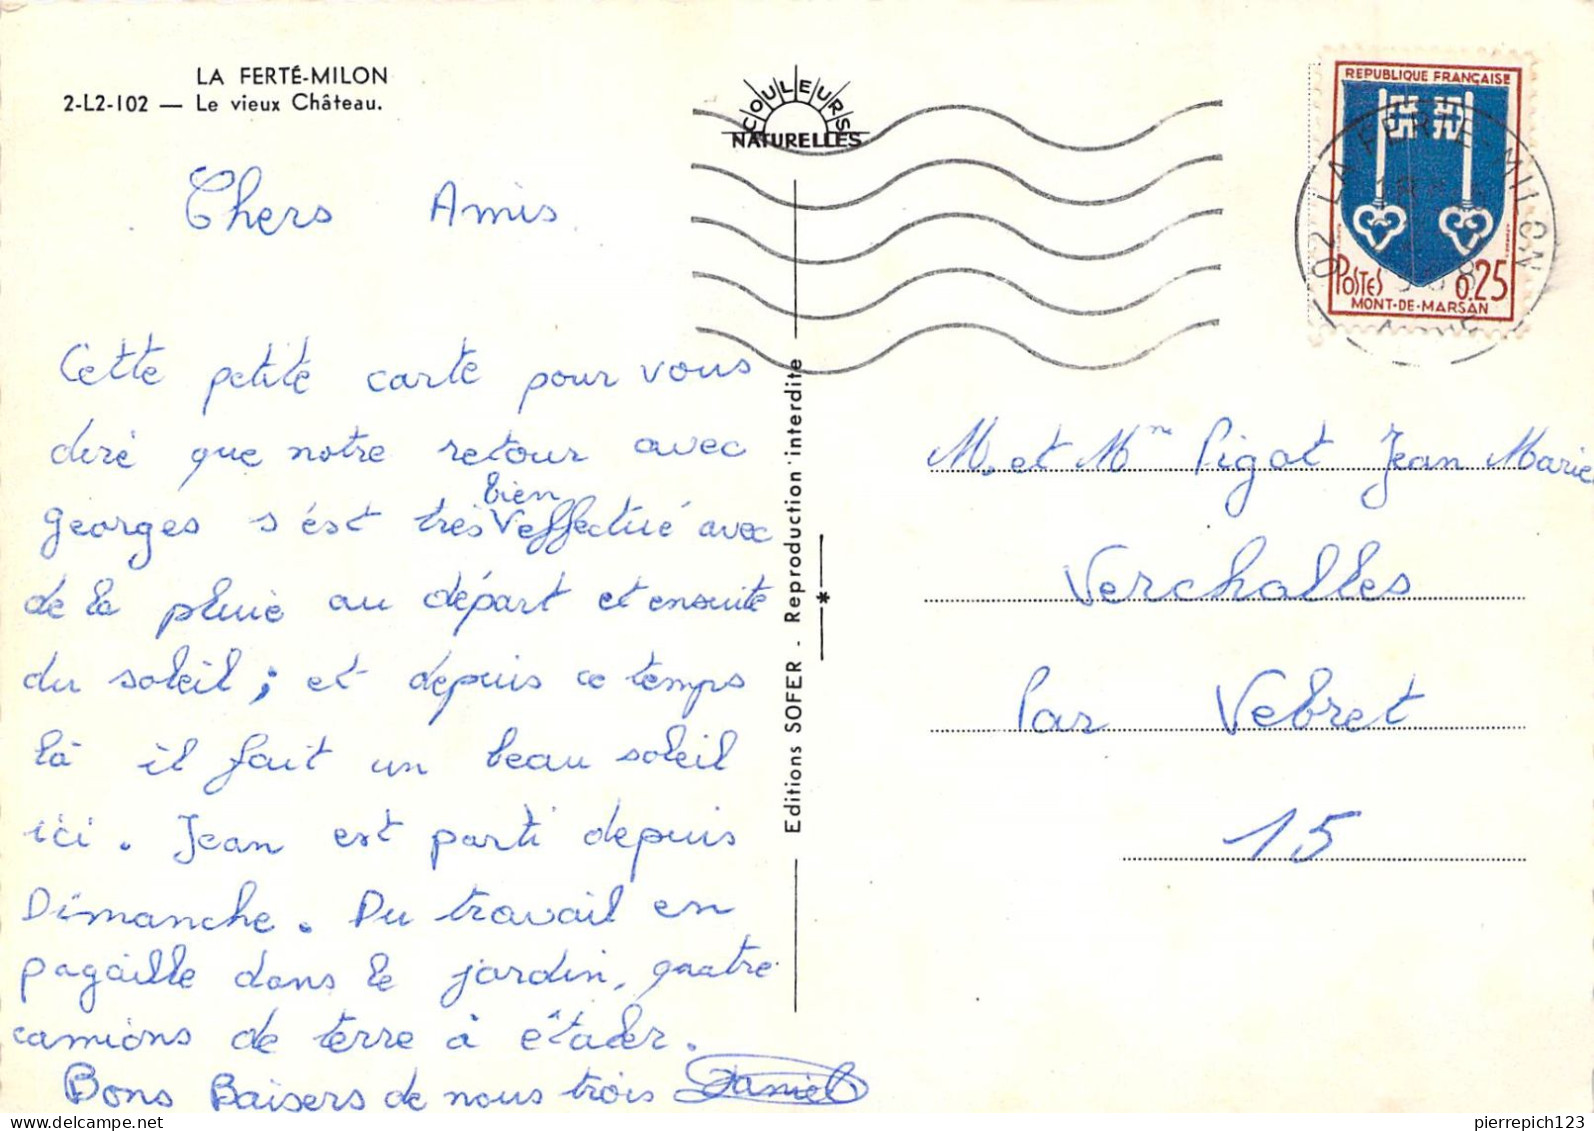 LA FERTÉ-MILON
2-L2-102 — Le vieux Château.
COULEURS
NATURELLES
REPUBLIQUE FRANÇAISE
POSTES 0,25
MONT-DE-MARSAN
02 LA FERTE-MILON
AISNE
Chers Amis
Cette petite carte pour vous
diré que notre retour avec
bien
Georges s'ést très V effectué avec
de la pluie au départ et ensuite
du soleil ; et depuis ce temps
là il fait un beau soleil
ici. Jean est parti depuis
Dimanche. Du travail en
pagaille dans le jardin, quatre
camions de terre à étaler.
Bons Baisers de nous trois Daniel
Editions SOFER - Reproduction interdite
*
M. et Mme Pigot Jean Marie
Verchalles
Par Vebret
15
pierrepich123